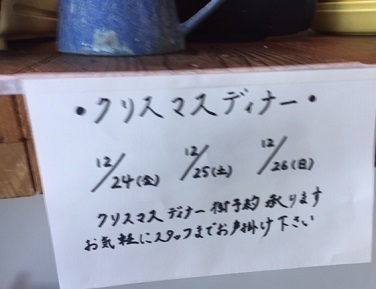 ・クリスマスディナー・
12/24(金) 12/25(土) 12/26(日)
クリスマスディナー御予約承ります
お気軽にスタッフまでお声掛け下さい